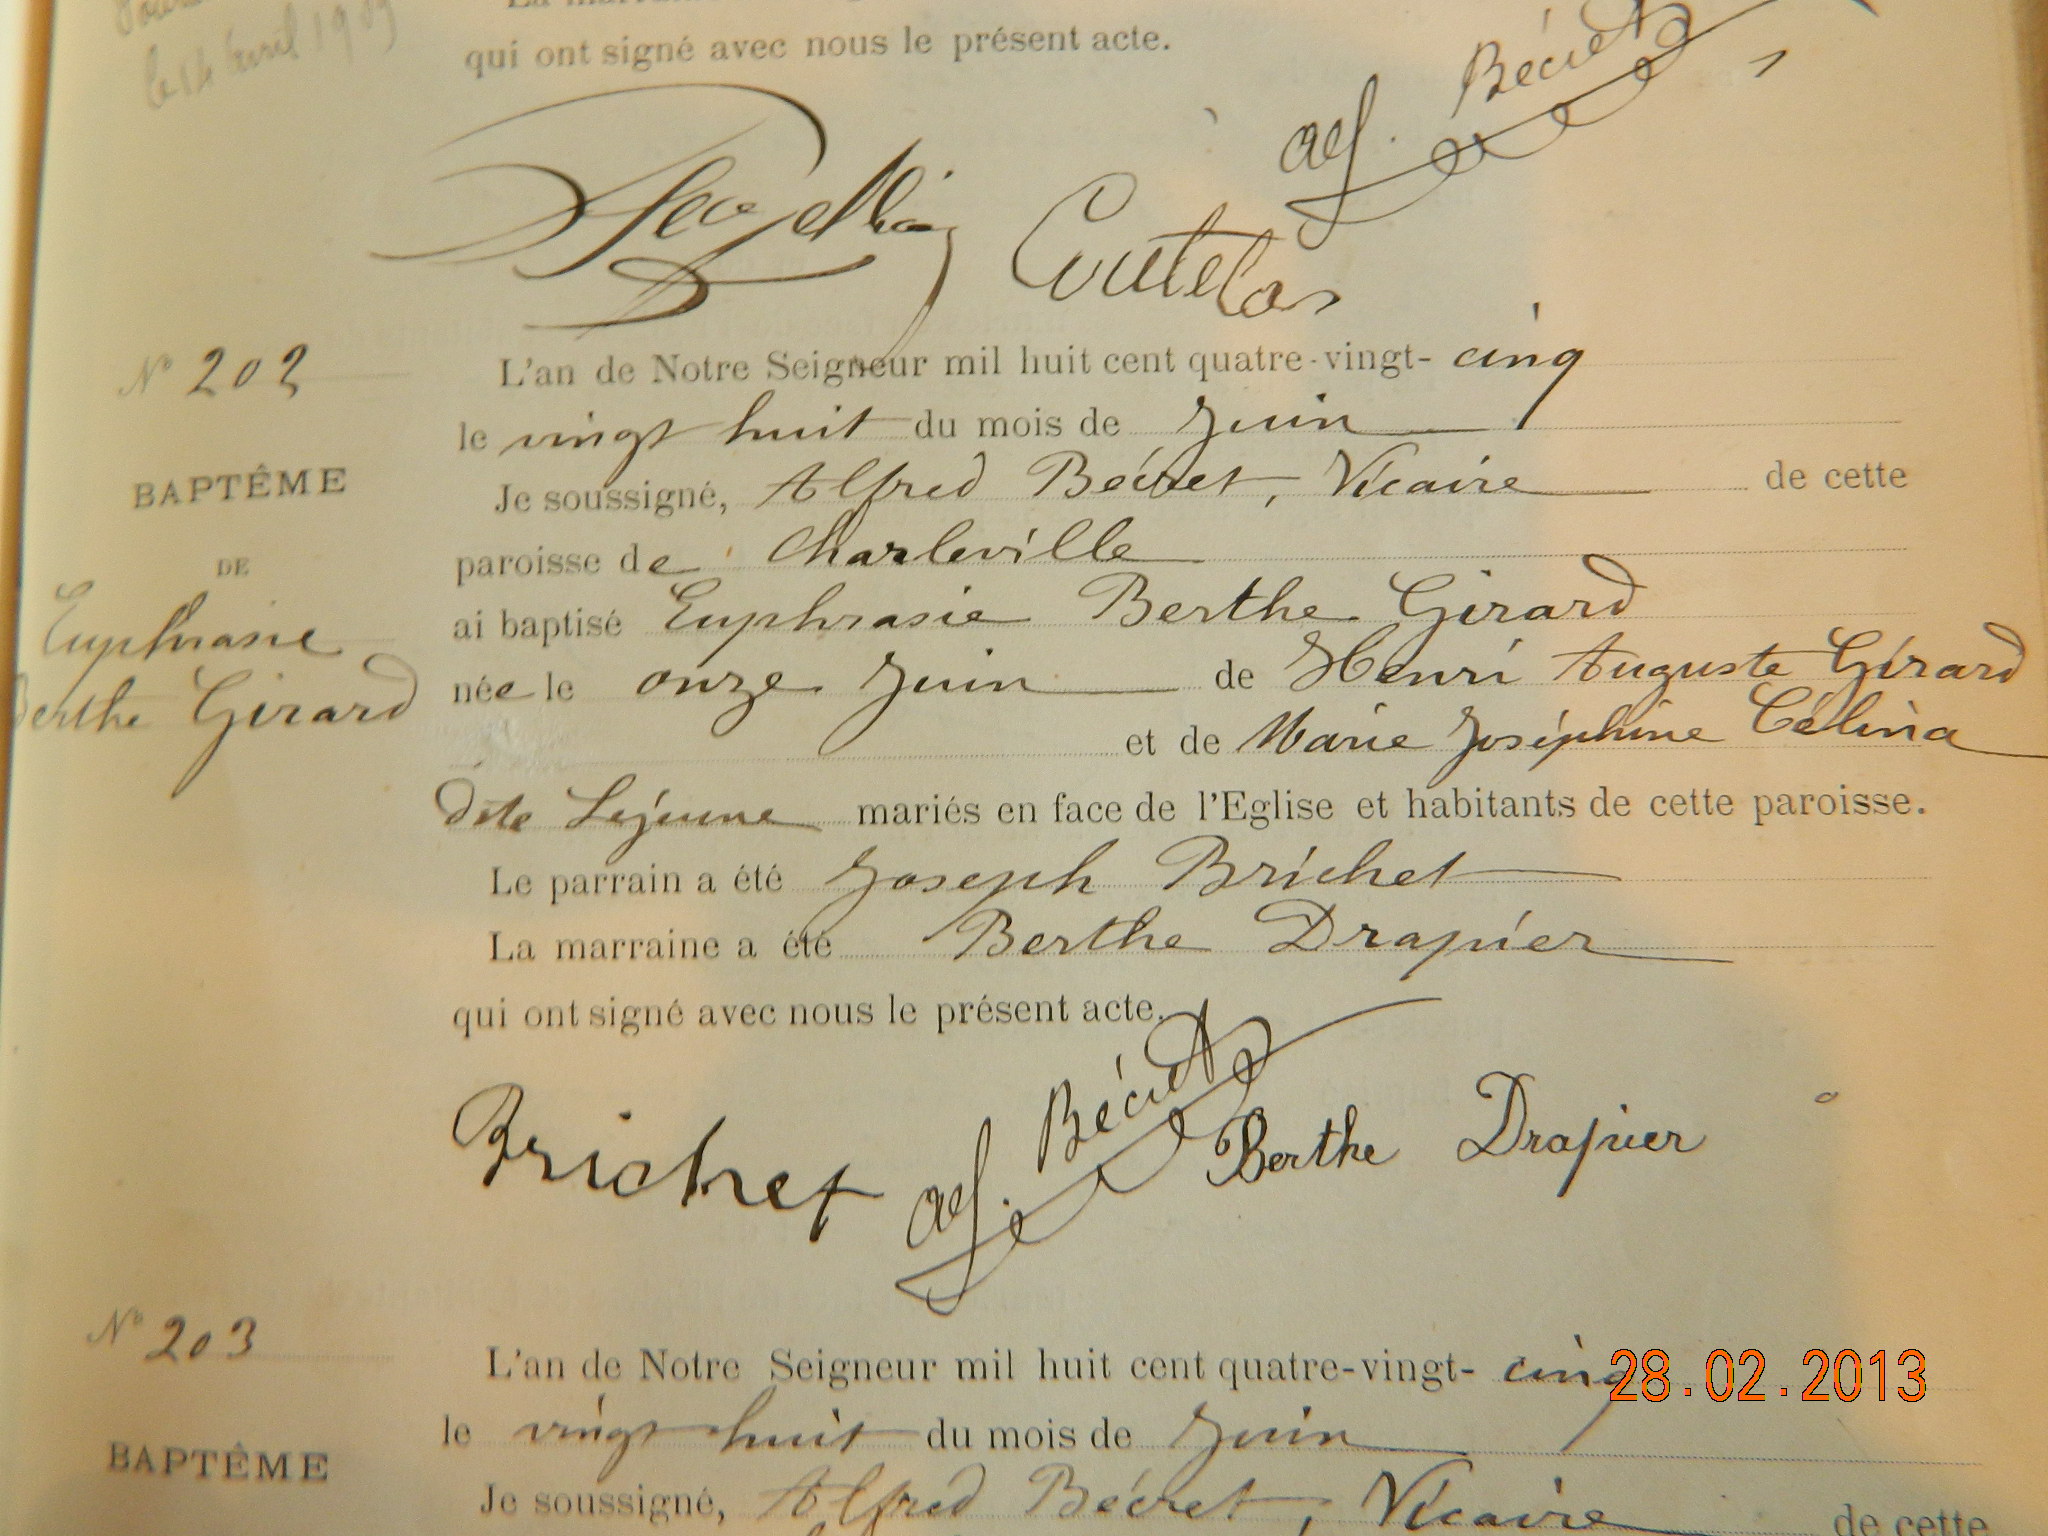 le 14 avril 1909
qui ont signé avec nous le présent acte.
Alf. Bécret
Coutelas
N° 202
L'an de Notre Seigneur mil huit cent quatre-vingt- cinq
le vingt huit du mois de Juin
BAPTÊME
Je soussigné, Alfred Bécret, Vicaire de cette
DE
paroisse de Charleville
Euphrasie
ai baptisé Euphrasie Berthe Girard
Berthe Girard
née le onze Juin de Henri Auguste Girard
et de Marie Joséphine Célina
dite Lejeune mariés en face de l'Eglise et habitants de cette paroisse.
Le parrain a été Joseph Brichet
La marraine a été Berthe Drapier
qui ont signé avec nous le présent acte.
Brichet Alf. Bécret Berthe Drapier
N° 203
L'an de Notre Seigneur mil huit cent quatre-vingt- cinq
28.02.2013
le vingt huit du mois de Juin
BAPTÊME
Je soussigné, Alfred Bécret, Vicaire de cette